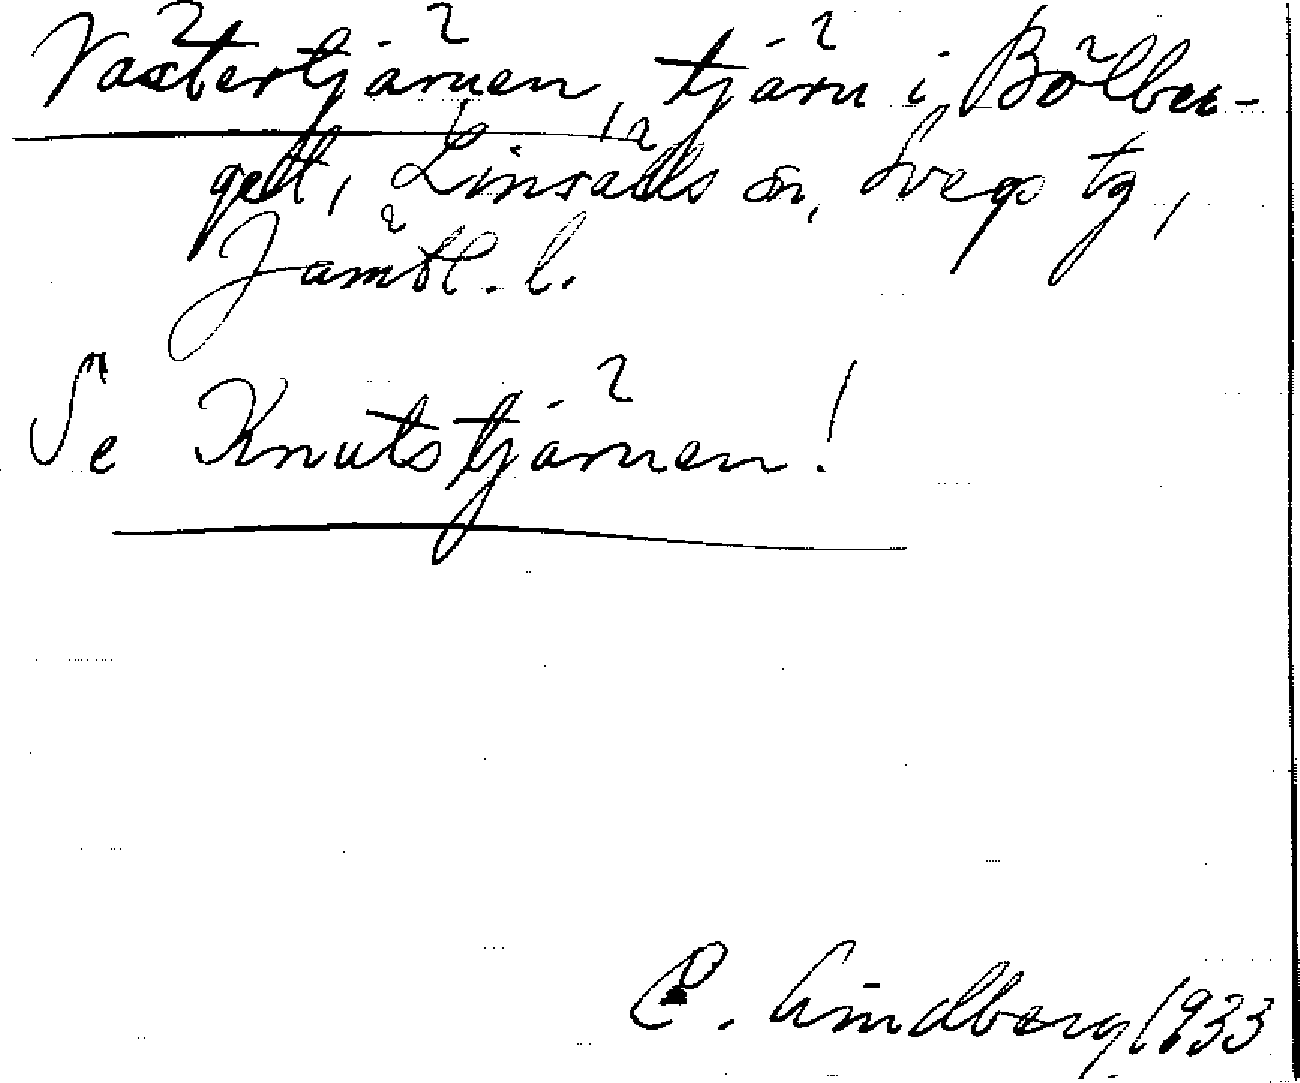 Västertjärnen, tjärn i Bölber-
get, Linsälls sn, Svegs tg,
Jämtl. l.
Se Knutstjärnen!
C. Lindberg 1933